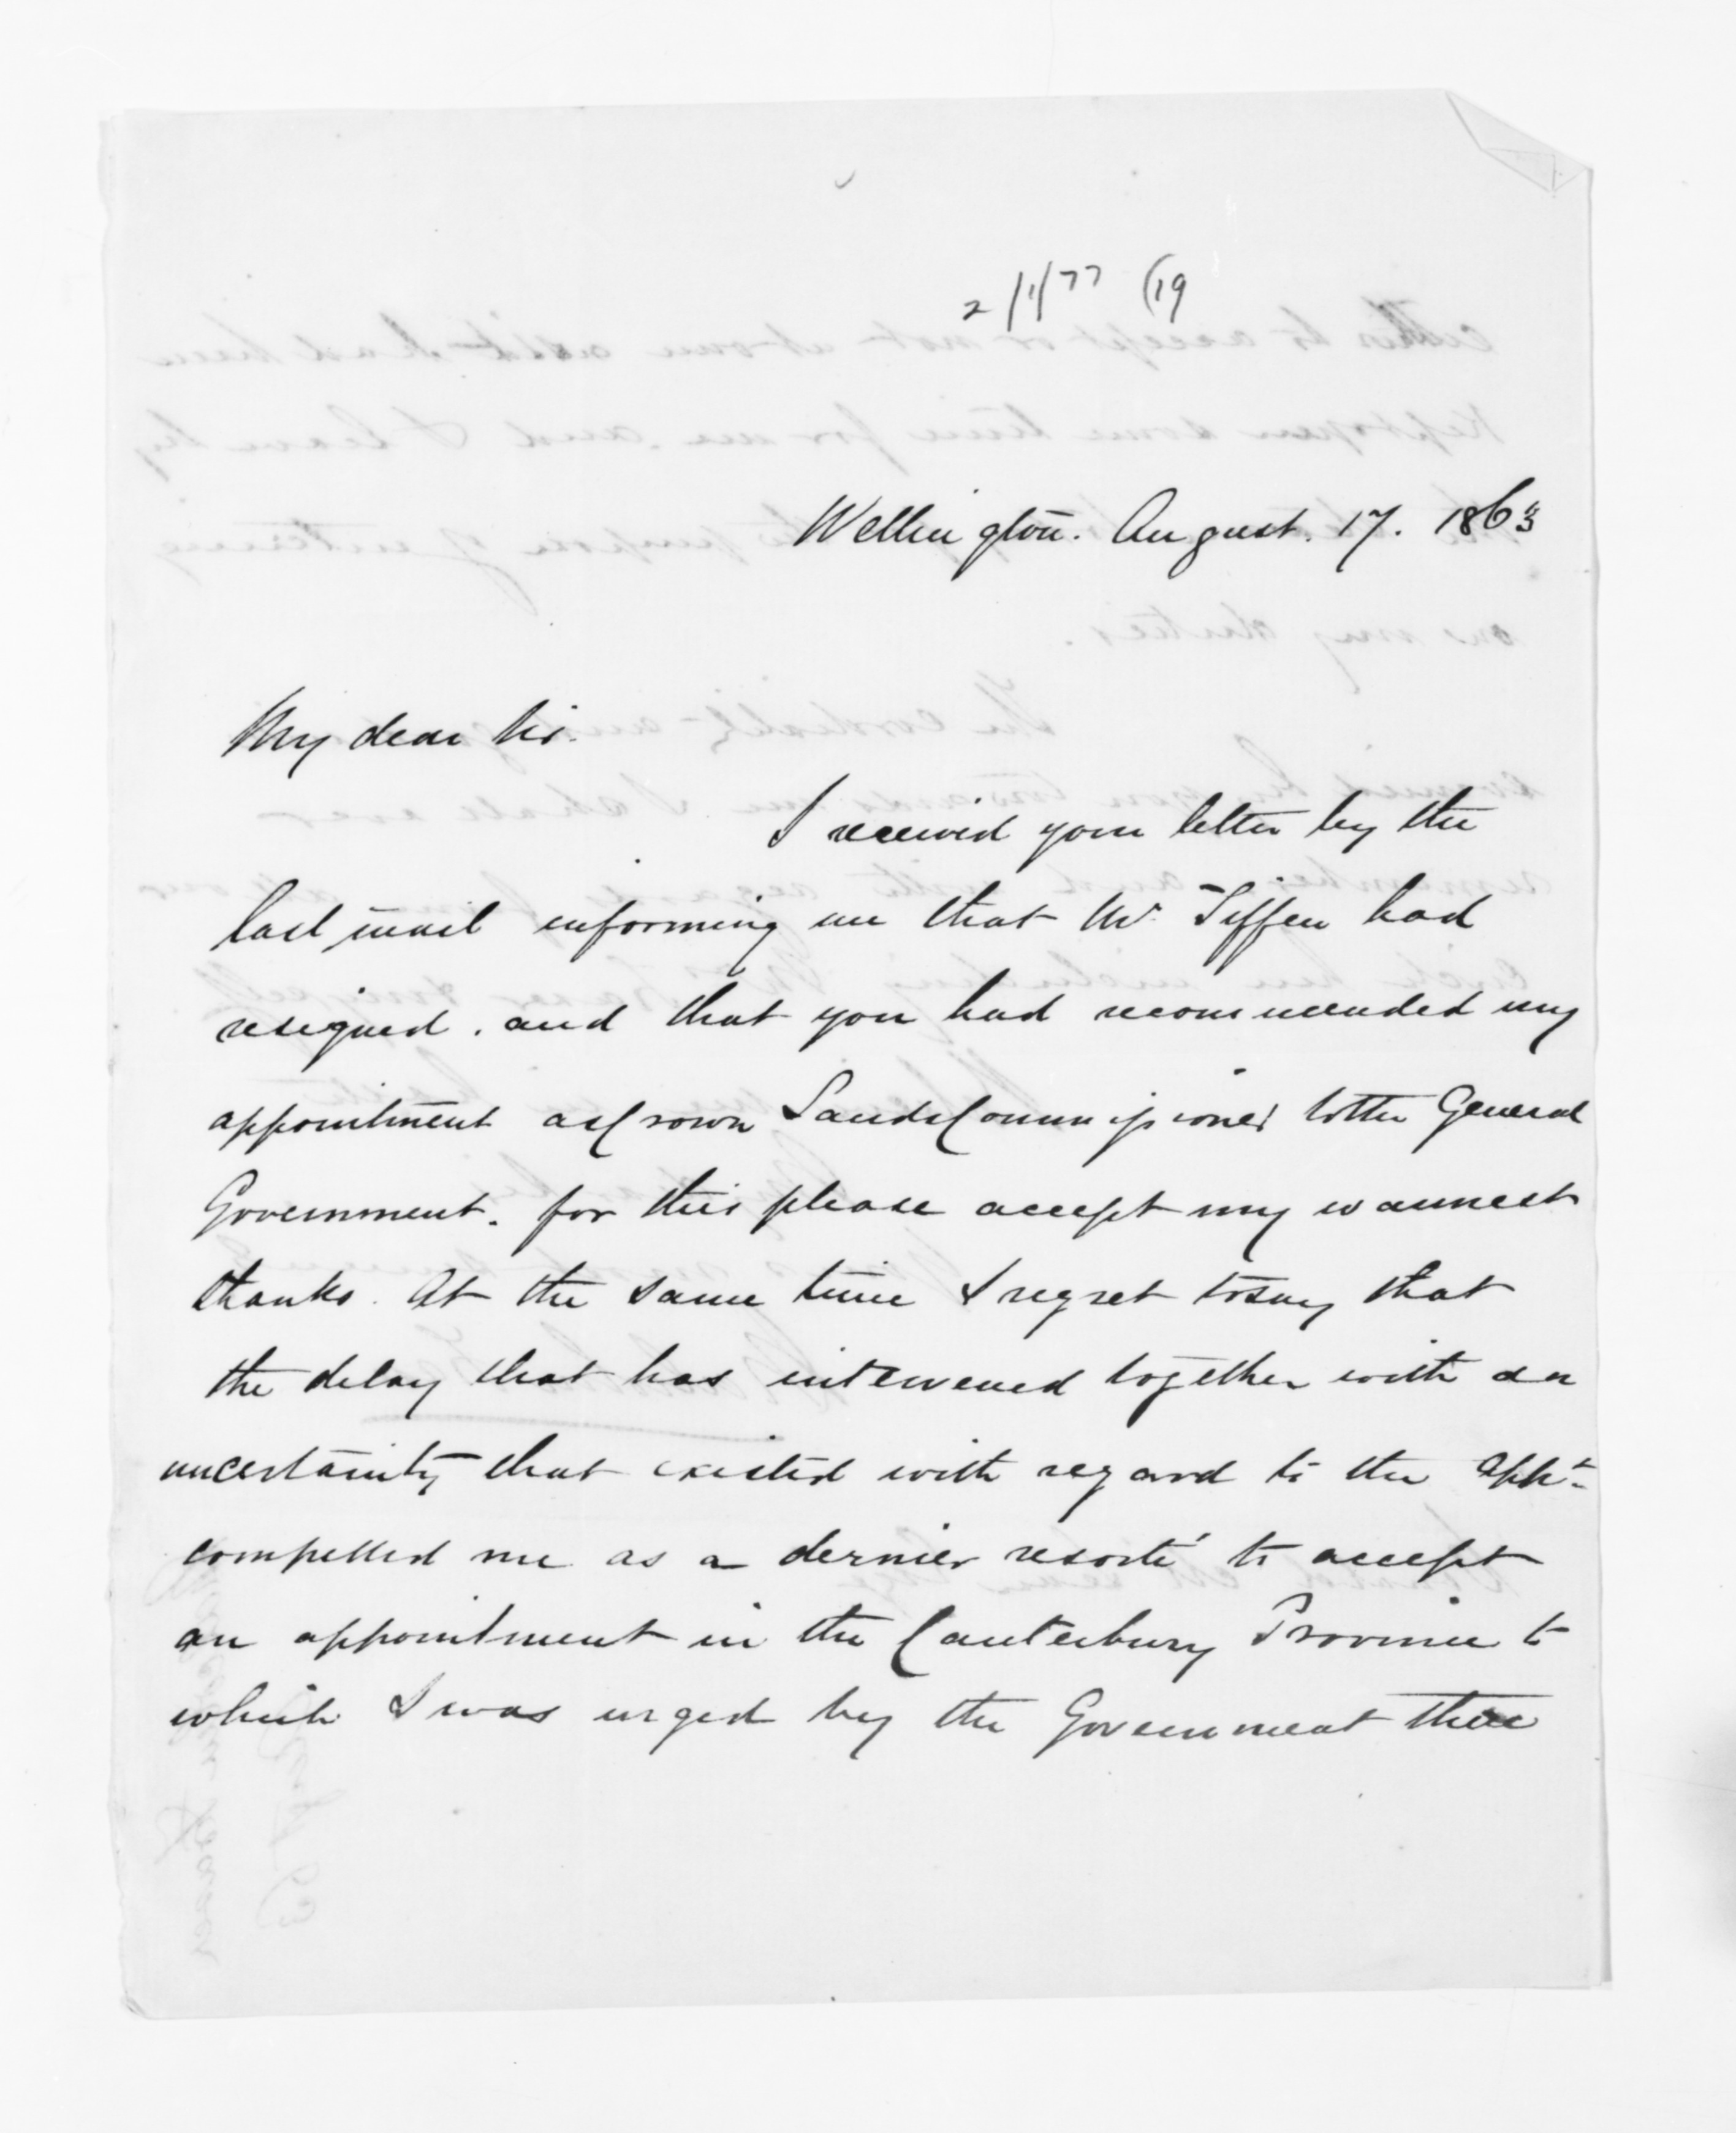 2/1/77 (19
Wellington. August. 17. 1863
My dear Sir.
I received your letter by the
last mail informing me that Mr. Tiffen had
resigned. and that you had recommended my
appointment as Crown Lands Commissioner to the General
Government. for this please accept my warmest
thanks. At the same time I regret to say that
the delay that has intervened together with an
uncertainty that existed with regard to the appt.
compelled me as a dernier resorté to accept
an appointment in the Canterbury Province to
which I was urged by the Government there